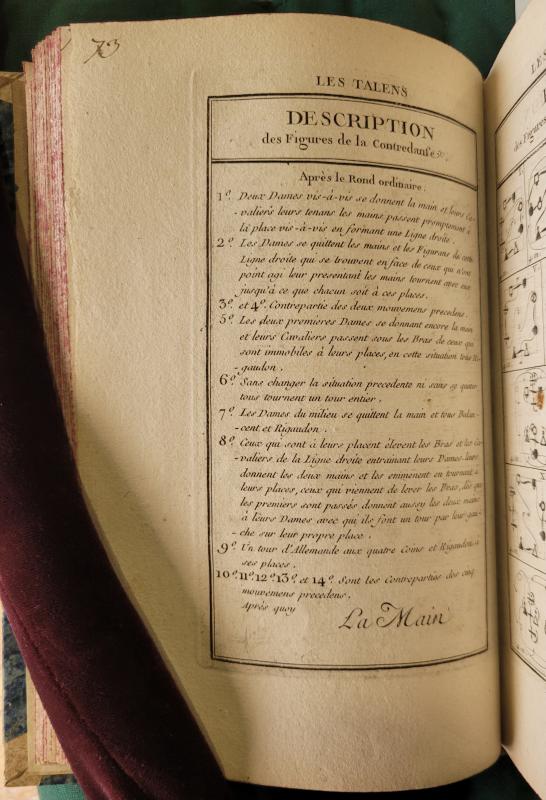 73
LES TALENS
DESCRIPTION
des Figures de la Contredanse &c.
Après le Rond ordinaire.
1º. Deux Dames vis-à-vis se donnent la main et leurs Ca-
-valiers leurs tenans les mains passent promptement à
la place vis-à-vis en formant une Ligne droite.
2º. Les Dames se quittent les mains et les Figurans de cette
Ligne droite qui se trouvent en face de ceux qui n'ont
point agi leur presentant les mains tournent avec eux
jusqu'à ce que chacun soit à ces places.
3º. et 4º. Contrepartie des deux mouvemens precedens.
5º. Les deux premieres Dames se donnant encore la main
et leurs Cavaliers passent sous les Bras de ceux qui
sont immobiles à leurs places, en cette situation tous Ri-
-gaudon.
6º. Sans changer la situation precedente ni sans se quiter
tous tournent un tour entier.
7º. Les Dames du milieu se quittent la main et tous Balan-
-cent et Rigaudon.
8º. Ceux qui sont à leurs placent élevent les Bras et les Ca-
-valiers de la Ligne droite entrainant leurs Dames leurs
donnent les deux mains et les emmenent en tournant à
leurs places, ceux qui viennent de lever les Bras, dès que
les premiers sont passés donnent aussy les deux mains
à leurs Dames avec qui ils font un tour par leur gau-
-che sur leur propre place.
9º. Un tour d'Allemande aux quatre Coins et Rigaudon à
ses places.
10º. 11º. 12º. 13º. et 14º. Sont les Contreparties des cinq
mouvemens precedens.
Après quoy
La Main